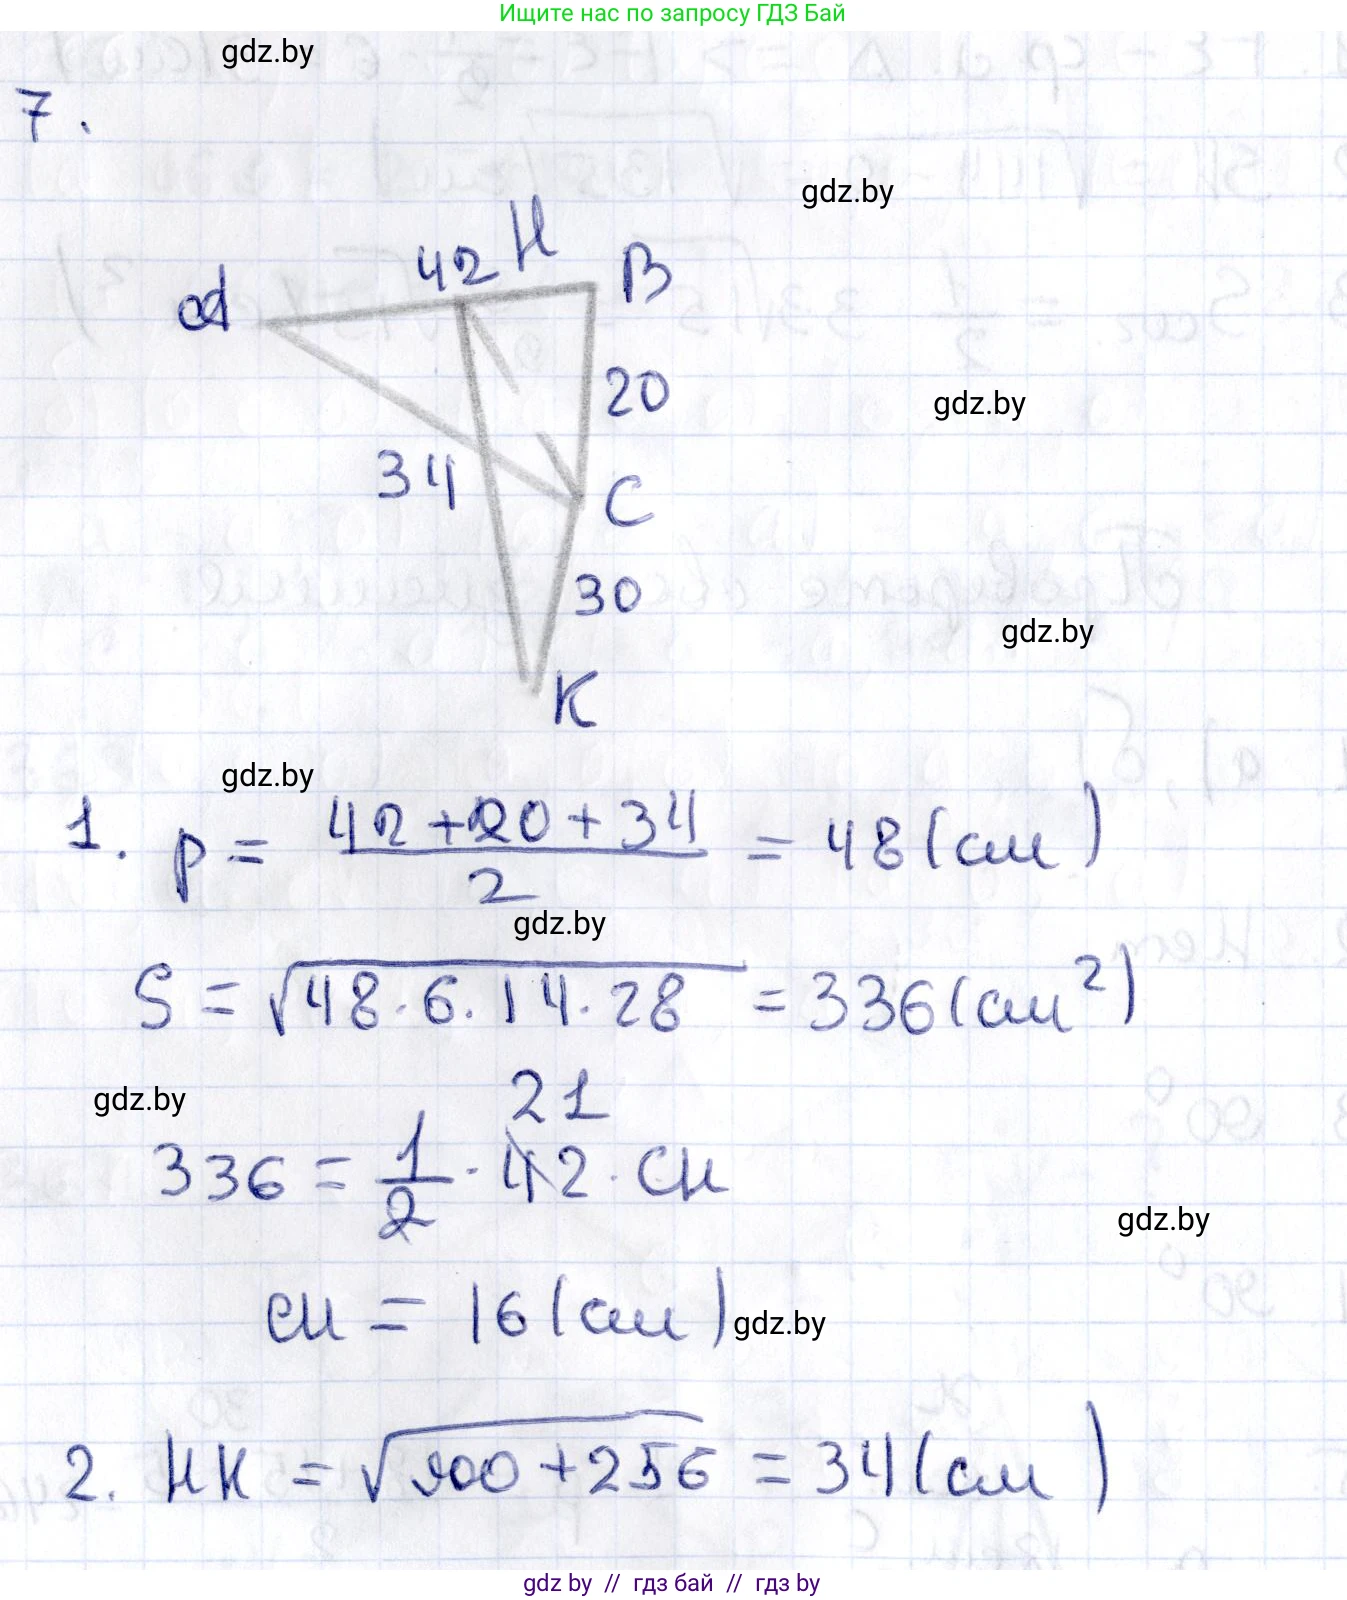 Ищите нас по запросу ГДЗ Бай
gdz.by
7.
gdz.by
A 42 H B
20
gdz.by
34 C
30
gdz.by
K
gdz.by
1. p = (42 + 20 + 34)/2 = 48 (см)
gdz.by
S = √48·6·14·28 = 336 (см²)
gdz.by
21
336 = 1/2 · 42 · CH
gdz.by
CH = 16 (см)
gdz.by
2. HK = √900 + 256 = 34 (см)
gdz by // гдз бай // гдз by